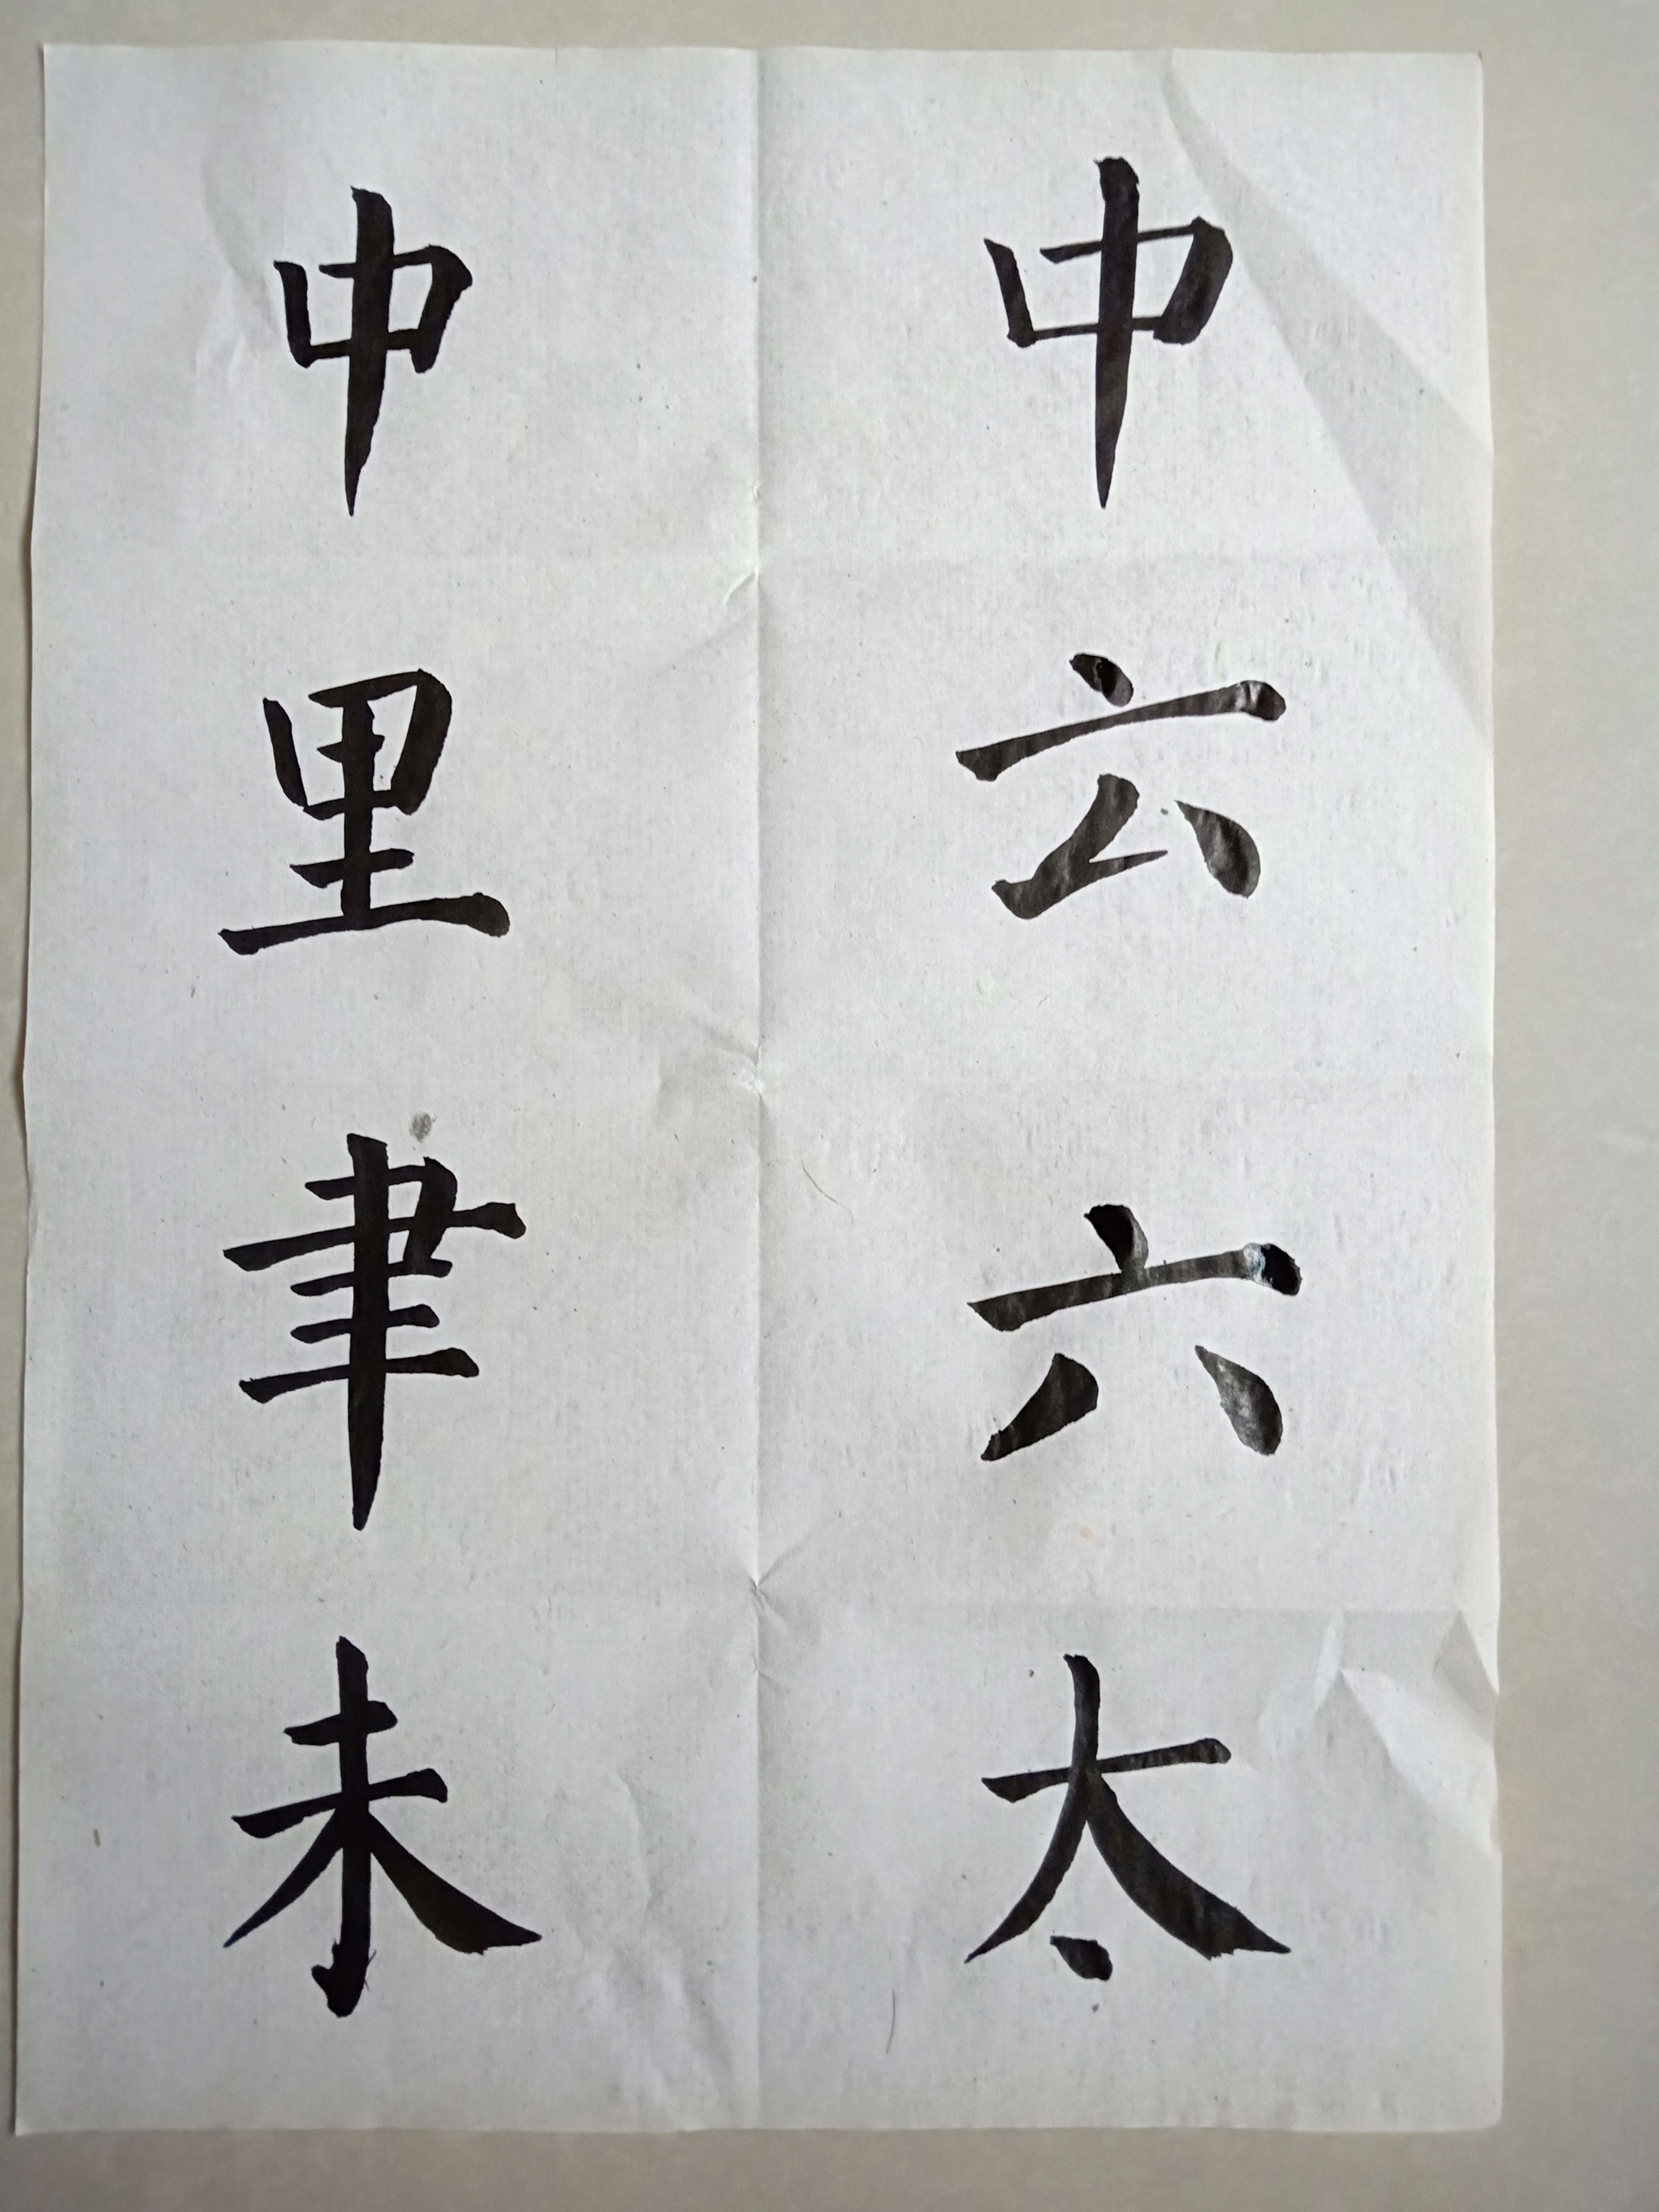 中云六太
中里聿未